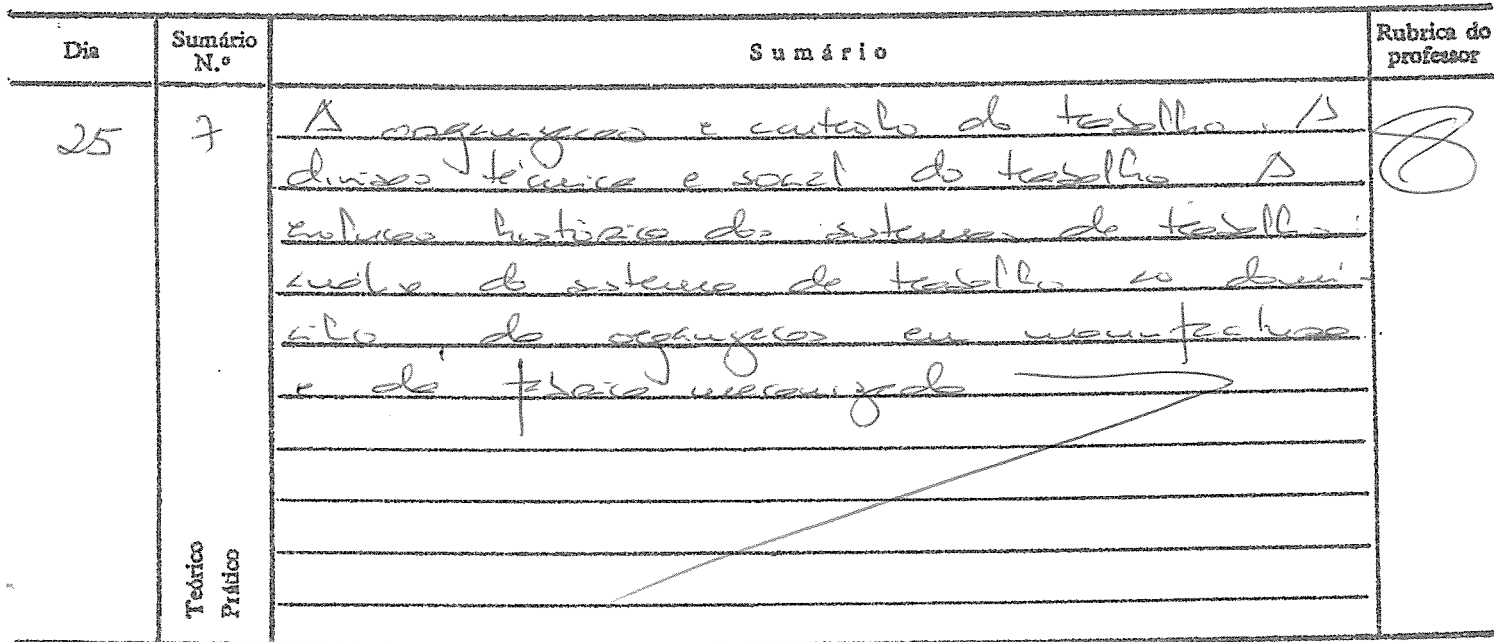 Dia Sumário N.º Sumário Rubrica do professor
25 7 A organização e controlo do trabalho. A
divisão técnica e social do trabalho A
evolução histórica dos sistemas de trabalho:
análise do sistema de trabalho ao domi-
cílio, da organização em manufactura
e da fábrica mecanizada
Teórico
Prático